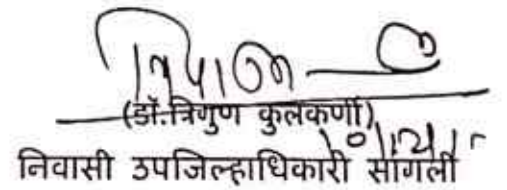 (डॉ.त्रिगुण कुलकर्णी)
निवासी उपजिल्हाधिकारी सांगली